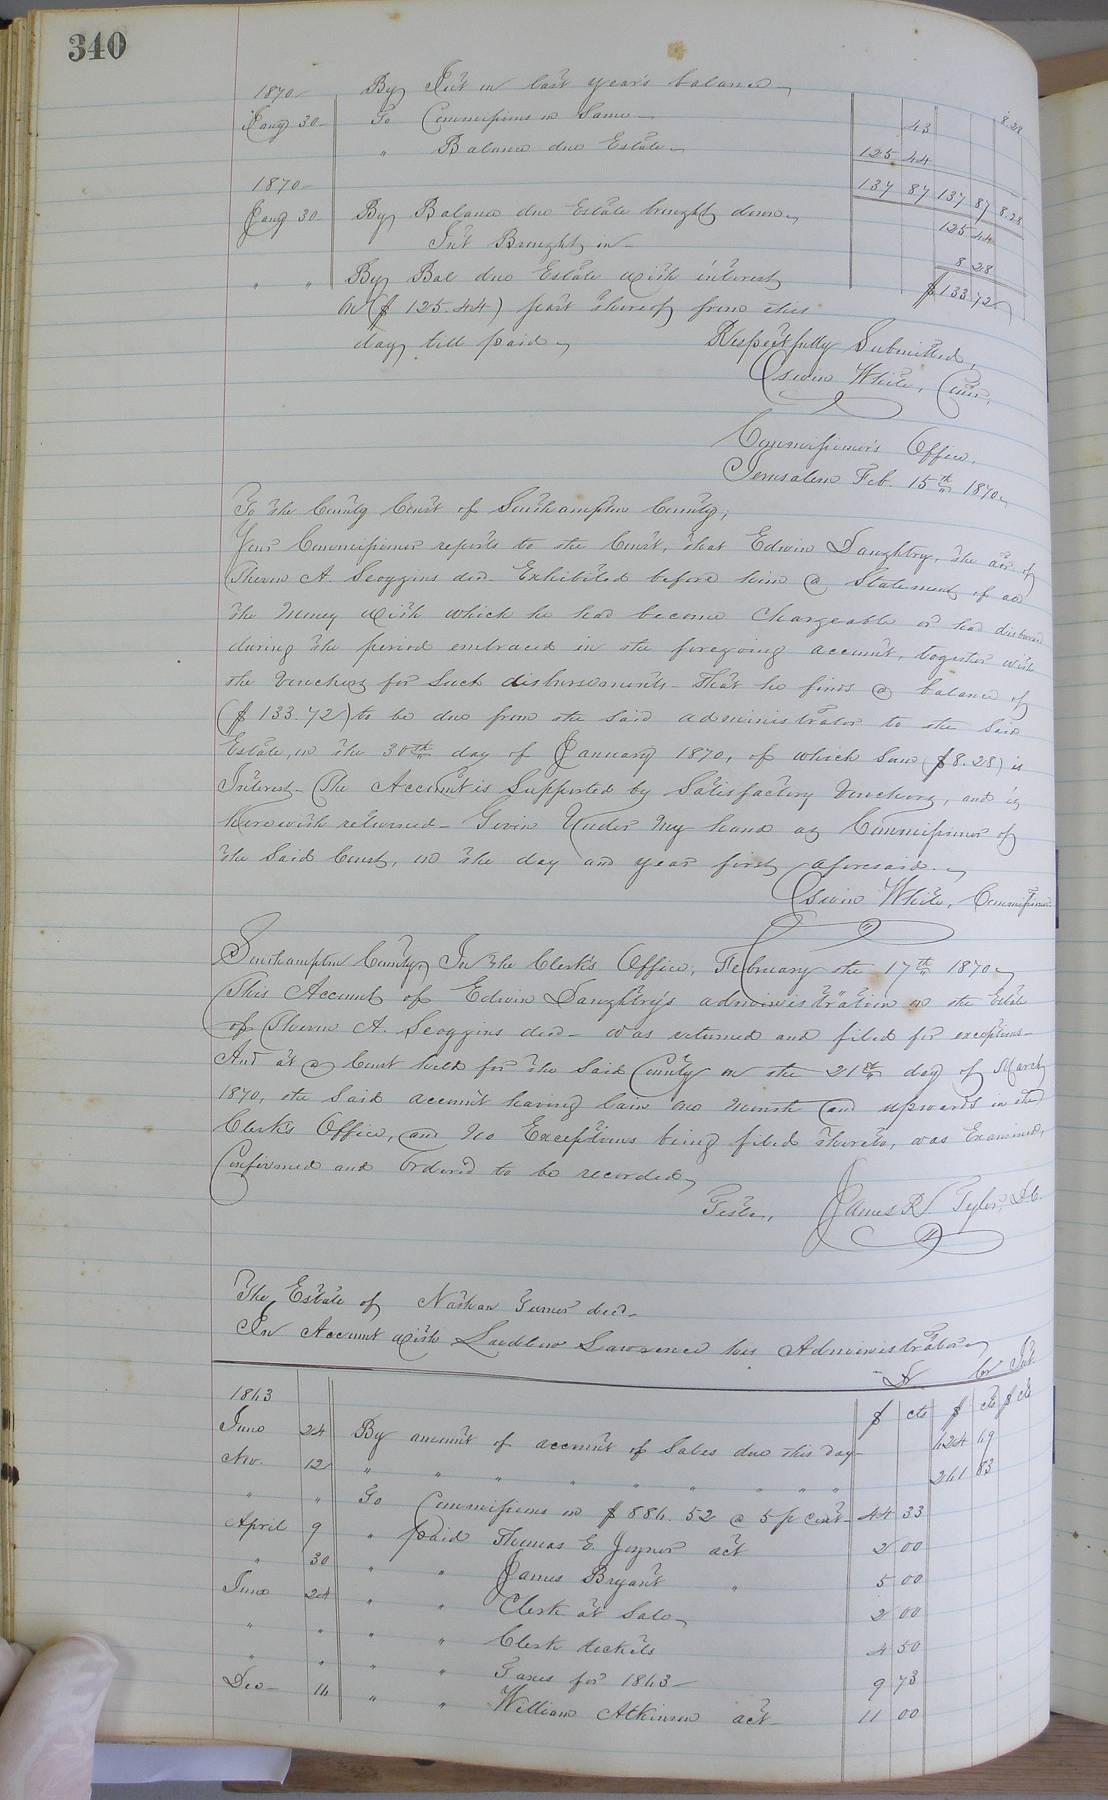 340
1870 By Int on last year's balance 8.28
Jany 30 To Commissions on Same 43
" Balance due Estate 125 44
1870 137 87 137 87 8.28
Jany 30 By Balance due Estate brought down 125 44
Int Brought in 8 28
" " By Bal due Estate with interest $133.72
on ($125.44) part thereof from this
day till paid
Respectfully Submitted,
White, Comr.
Commissioner's Office,
Jerusalem Feb. 15th 1870
To the County Court of Southampton County;
Your Commissioner reports to the Court, that Edwin Daughtry, the adr of
A. Scoggins decd. Exhibited before him a Statement of all
the money with which he had become Chargeable or had disbursed
during the period embraced in the foregoing account, together with
the Vouchers for Such disbursements - That he finds a balance of
($133.72) to be due from the said administrator to the said
Estate, on the 30th day of January 1870, of which Sum ($8.28) is
Interest - The Account is Supported by Satisfactory Vouchers, and is
herewith returned - Given Under My hand as Commissioner of
the Said Court, on the day and year first aforesaid.
White, Commissioner
Southampton County, In the Clerk's Office, February the 17th 1870
This Account of Edwin Daughtry's administration on the Estate
of A. Scoggins decd - was returned and filed for exceptions -
And at a Court held for the Said County on the 21st day of March
1870, the said account having lain one month and upwards in the
Clerk's Office, and no Exceptions being filed thereto, was Examined,
Confirmed and Ordered to be recorded,
Teste, James R. Tyler, D.C.
The Estate of Nathan Turner decd -
In Account with Lawrence his Administrator
Dr Cr Int
1863 $ cts $ cts $ cts
June 24 By amount of account of Sales due this day 624 69
Nov. 12 " " " " " " " " " 261 83
" " To Commissions on $886.52 @ 5 p Cent 44 33
April 9 " paid Thomas E. Joyner act 2 00
" 30 " " James Bryant " 5 00
June 24 " " Clerk at Sale 2 00
" " " " Clerk tickets 4 50
" " " " Taxes for 1863 9 73
Dec 16 " " William Atkinson act 11 00